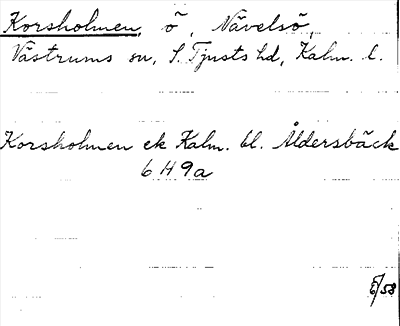 Korsholmen, ö, Nävelsö,
Västrums sn, S. Tjusts hd, Kalm. l.
Korsholmen ek Kalm. bl. Åldersbäck
6 H 9a
6/58